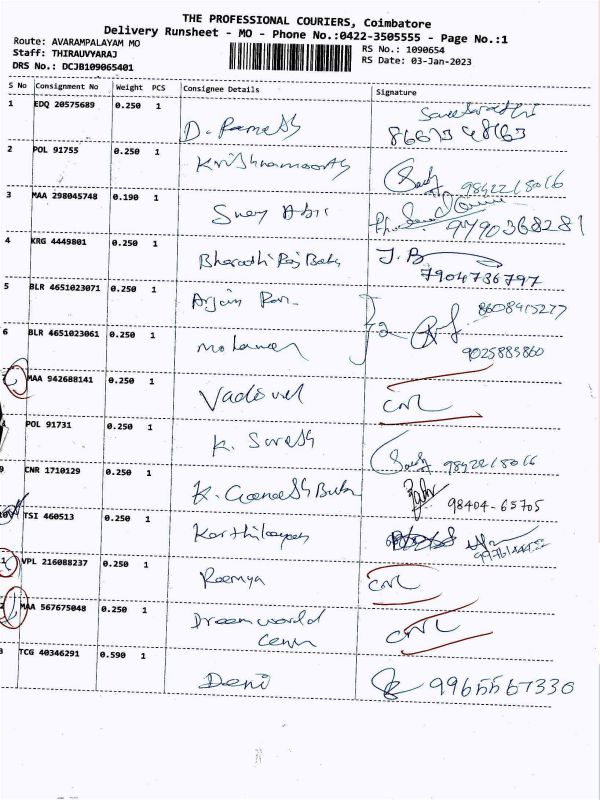 THE PROFESSIONAL COURIERS, Coimbatore
Delivery Runsheet - MO - Phone No.:0422-3505555 - Page No.:1
Route: AVARAMPALAYAM MO
RS No.: 1090654
Staff: THIRAUVYARAJ
RS Date: 03-Jan-2023
DRS No.: DCJB109065401
S No Consignment No Weight PCS Consignee Details Signature
1 EDQ 20575689 0.250 1 D. Ramesh
2 POL 91755 0.250 1 Krishnamoorthy 9842218016
3 MAA 298045748 0.190 1 9790368281
4 KRG 4449801 0.250 1 Bharathi Raj Babu J. B
7904736797
5 BLR 4651023071 0.250 1 Arjun
6 BLR 4651023061 0.250 1 2
9025883860
MAA 942688141 0.250 1 Vadivel CNL
POL 91731 0.250 1 K. Suresh 9842218016
9 CNR 1710129 0.250 1 K. Ganesh Babu 98404-65705
10 TSI 460513 0.250 1
1 VPL 216088237 0.250 1 Ramya CNL
2 MAA 567675048 0.250 1 Dream world CNL
3 TCG 40346291 0.590 1 Deni 9965567330